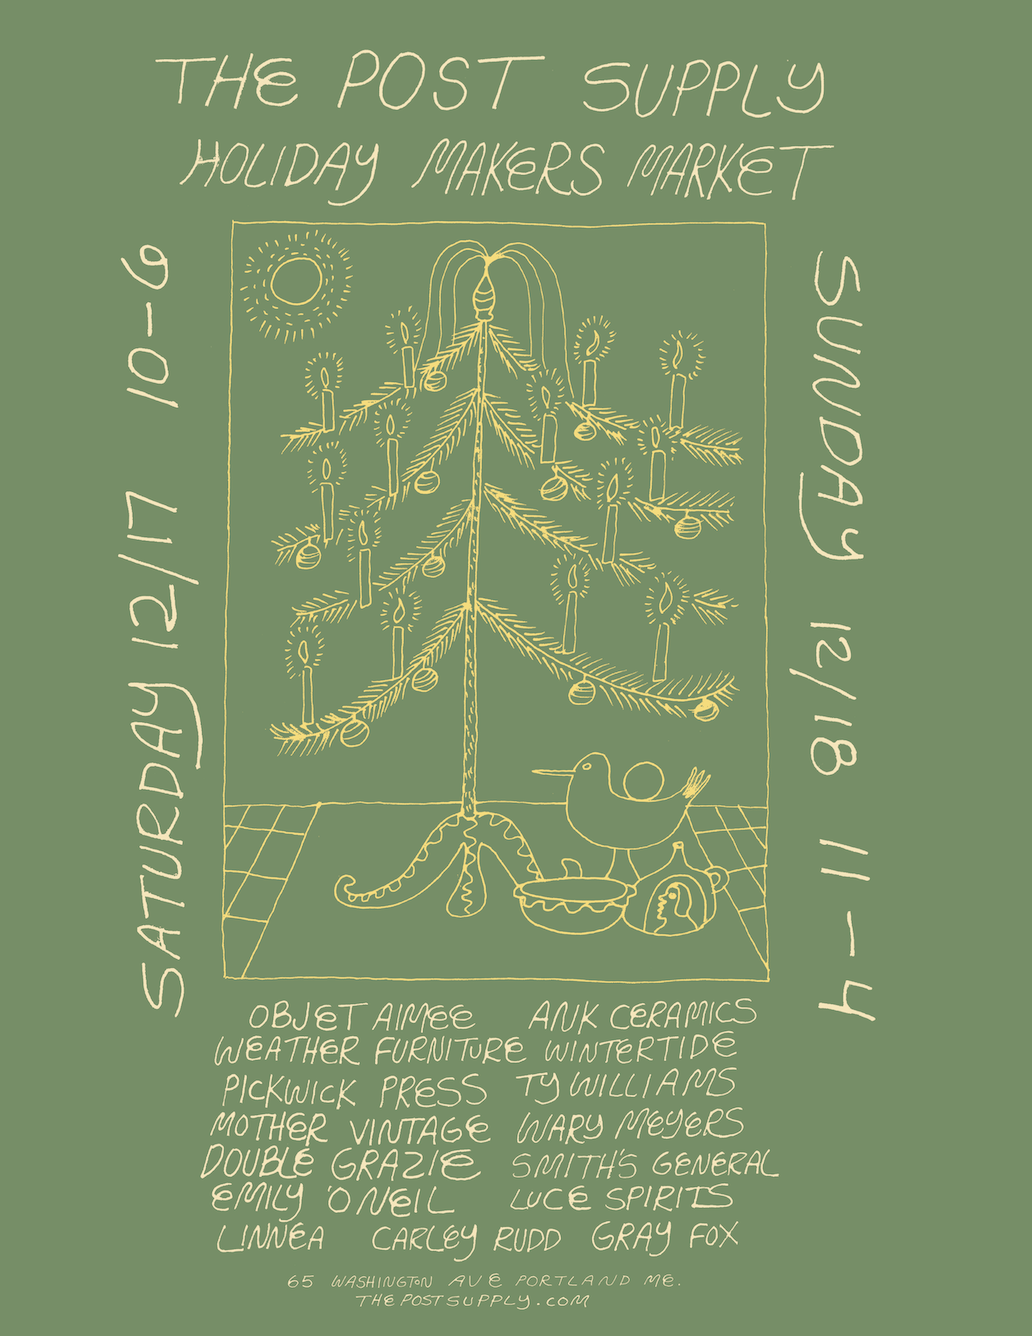 THE POST SUPPLY
HOLIDAY MAKERS MARKET
SATURDAY 12/17 10-6
SUNDAY 12/18 11-4
OBJET AIMEE ANK CERAMICS
WEATHER FURNITURE WINTERTIDE
PICKWICK PRESS TY WILLIAMS
MOTHER VINTAGE WARY MEYERS
DOUBLE GRAZIE SMITH'S GENERAL
EMILY 'ONEIL LUCE SPIRITS
LINNEA CARLEY RUDD GRAY FOX
65 WASHINGTON AVE PORTLAND ME.
THEPOSTSUPPLY.COM